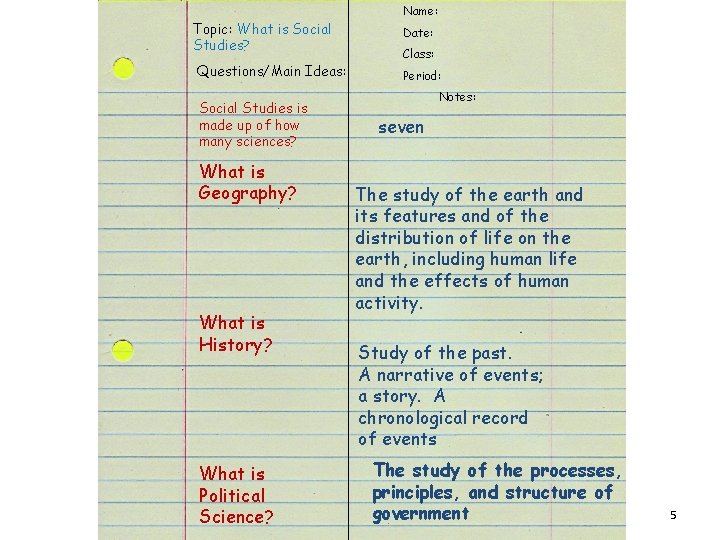 Name:
Topic: What is Social
Studies?
Date:
Class:
Questions/Main Ideas:
Period:
Notes:
Social Studies is
made up of how
many sciences?
seven
What is
Geography?
The study of the earth and
its features and of the
distribution of life on the
earth, including human life
and the effects of human
activity.
What is
History?
Study of the past.
A narrative of events;
a story. A
chronological record
of events
What is
Political
Science?
The study of the processes,
principles, and structure of
government
5